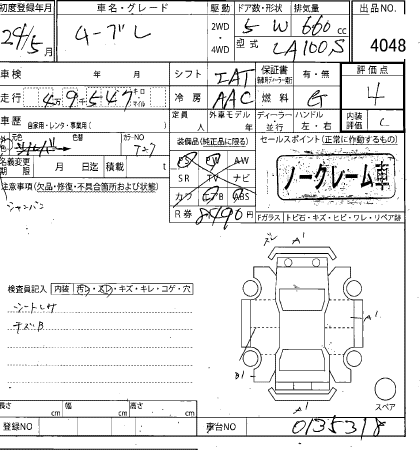 初度登録年月 車名・グレード 駆動 ドア数・形状 排気量 出品NO.
24/5月 ムーブ L 2WD 5 W 660cc
・4WD 型式 LA100S 4048
車検 年 月 シフト IAT 保証書 有・無 評価点
走行 4万9千547キロ 冷房 AAC 燃料 G 4
マイル
車歴 定員 外車モデル ディーラー ハンドル 内装
自家用・レンタ・事業用( ) 人 年 並行 左・右 評価 C
外色 シルバー 色替 カラーNO T27 装備品(純正品に限る) セールスポイント(正常に作動するもの)
名義変更期限 月 日迄 積載 t PS PW AW
SR TV ナビ ノークレーム車
注意事項(欠品・修復・不具合箇所および状態) カワ エアB ABS
シャンパン R券 8490円 Fガラス トビ石・キズ・ヒビ・ワレ・リペア跡
A1
検査員記入 内装 汚レ・スレ・キズ・キレ・コゲ・穴
シートレサ
A1
B1
スペア
長さ cm 幅 cm 高さ cm A1
登録NO 車台NO 0135318